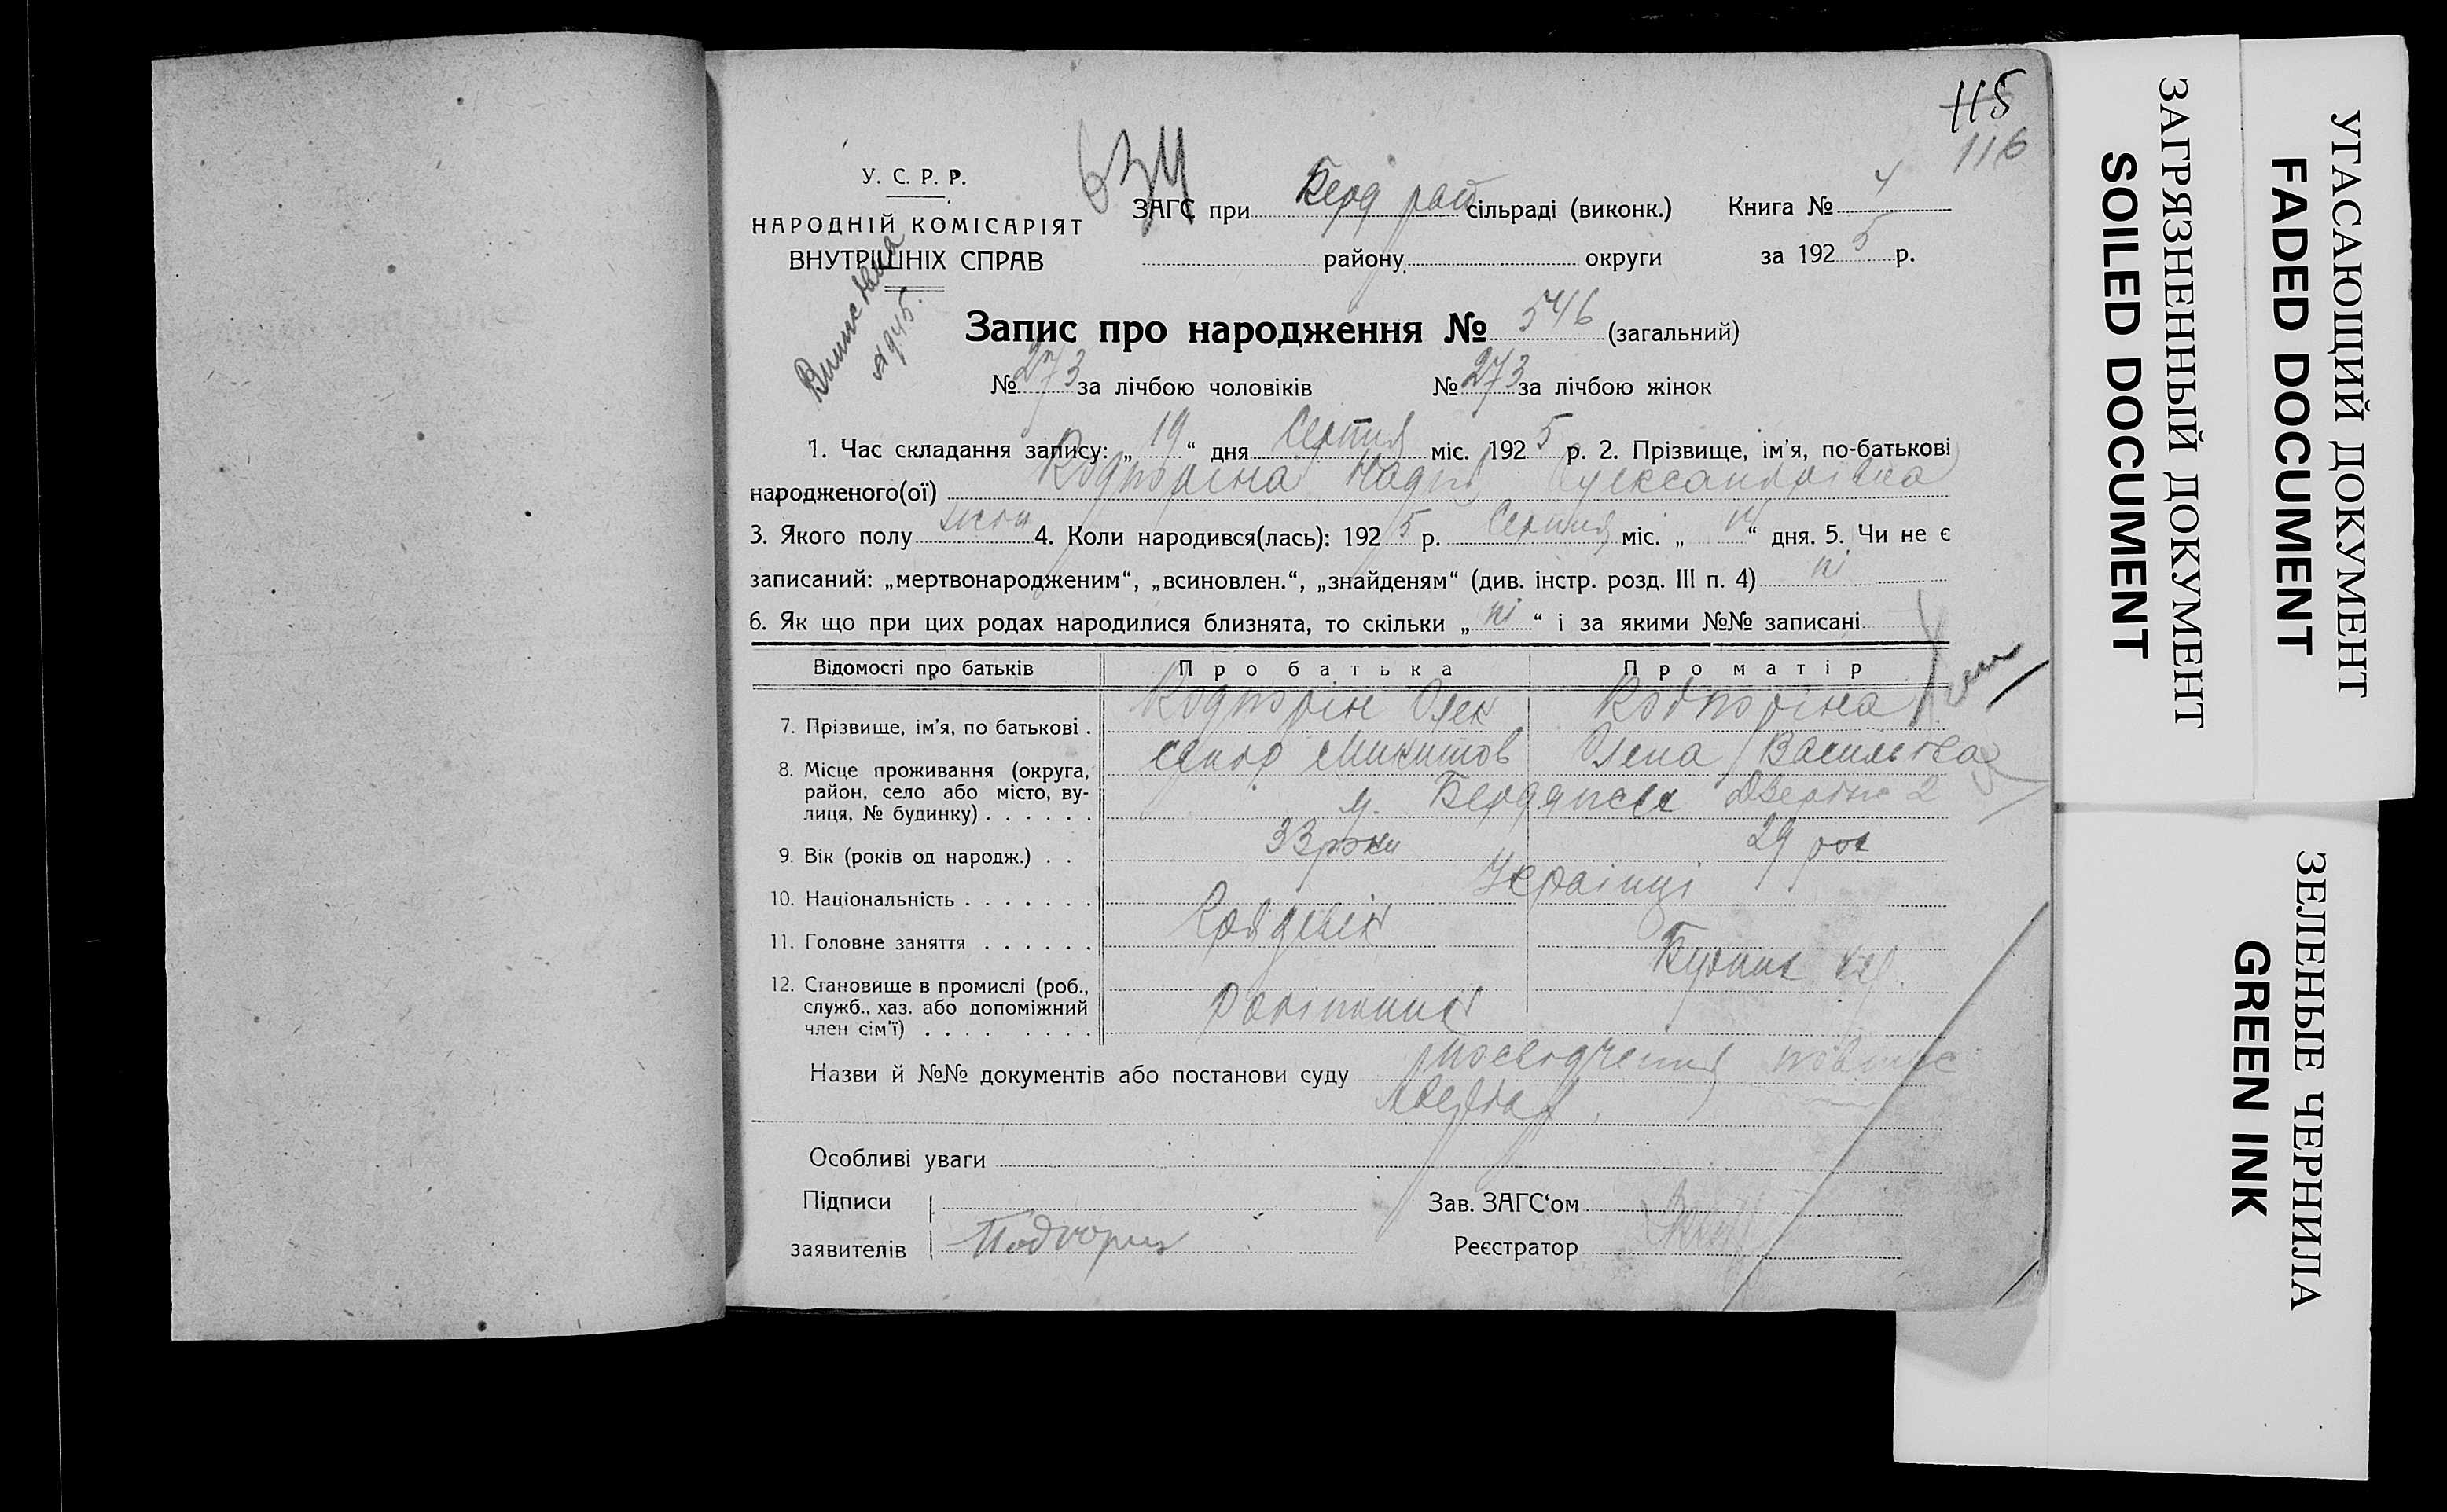 115
116
634
У. С. Р. Р.
НАРОДНІЙ КОМІСАРІЯТ
ВНУТРІШНІХ СПРАВ
ЗАГС при Берд рай сільраді (виконк.) Книга № 4
району округи за 1925 р.
Запис про народження № 546 (загальний)
№ 273 за лічбою чоловіків № 273 за лічбою жінок
1. Час складання запису: „19“ дня Серпня міс. 1925 р. 2. Прізвище, ім'я, по-батькові
народженого(ої) Надія Олександрівна
3. Якого полу 4. Коли народився(лась): 1925 р. Серпня міс. „ “ дня. 5. Чи не є
записаний: „мертвонародженим“, „всиновлен.“, „знайденям“ (див. інстр. розд. III п. 4) ні
6. Як що при цих родах народилися близнята, то скільки „ні“ і за якими №№ записані
Відомості про батьків Про батька Про матір
7. Прізвище, ім'я, по батькові . Олек
Микитов Олена Василівна
8. Місце проживання (округа,
район, село або місто, ву-
лиця, № будинку) . . . . . . м. Бердянськ 2
9. Вік (років од народж.) . . 33 роки 29 рок
10. Національність . . . . . . . Українці
11. Головне заняття . . . . . .
12. Становище в промислі (роб.,
служб., хаз. або допоміжний
член сім'ї) . . . . . . . . робітник
Назви й №№ документів або постанови суду посвідчення
Особливі уваги
Підписи Зав. ЗАГС‘ом
заявителів Реєстратор
ЗАГРЯЗНЕННЫЙ ДОКУМЕНТ
SOILED DOCUMENT
УГАСАЮЩИЙ ДОКУМЕНТ
FADED DOCUMENT
ЗЕЛЕНЫЕ ЧЕРНИЛА
GREEN INK